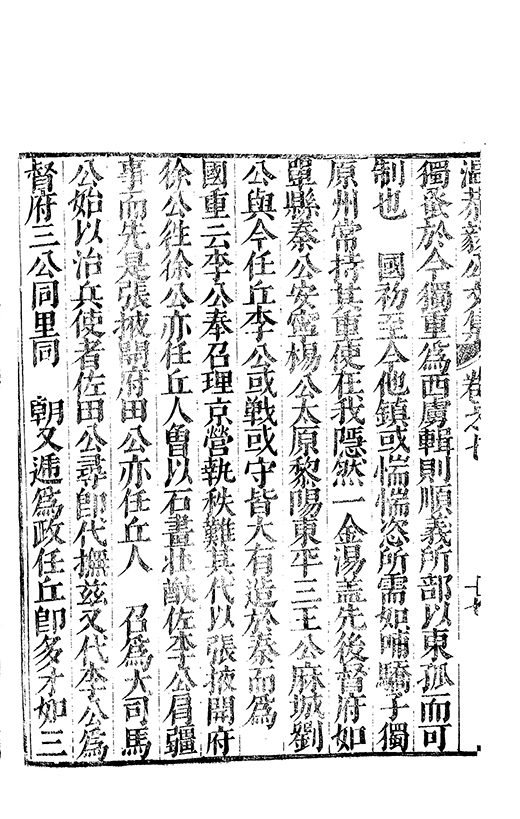 溫恭毅公文集 卷之十
獨蚤於今獨重爲西虜輯則順義所部以東孤而可
制也 國初至今他鎮或惴惴恣所需如哺驕子獨
原州常持其重使在我隱然一金湯盖先後督府如
單縣秦公安寧楊公太原黎陽東平三王公麻城劉
公與今任丘李公或戰或守皆大有造於秦而爲
國重云李公奉召理京營執秩難其代以張掖開府
徐公徃徐公亦任丘人曾以石畫壯猷佐李公肩疆
事而先是張掖開府田公亦任丘人 召爲大司馬
公始以冶兵使者佐田公尋卽代撫兹又代李公爲
督府三公同里同 朝又遞爲政任丘卽多才如三